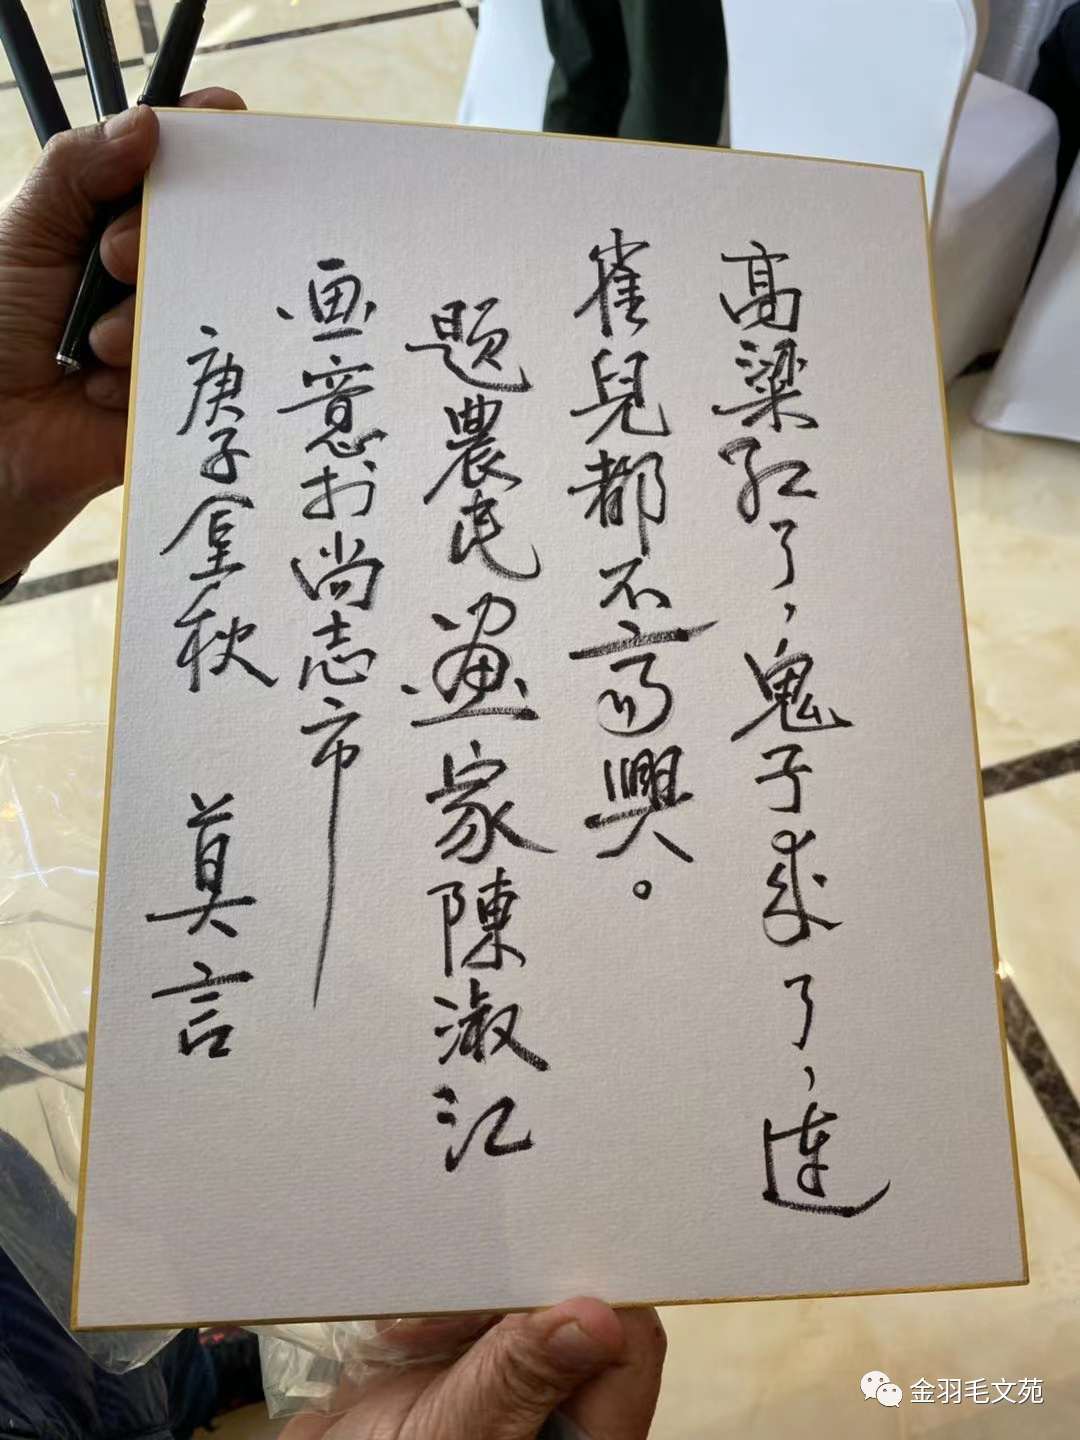 高粱红了，鬼子来了，连
雀兒都不高興。
题農民畫家陳淑江
画意於尚志市
庚子金秋 莫言
金羽毛文苑